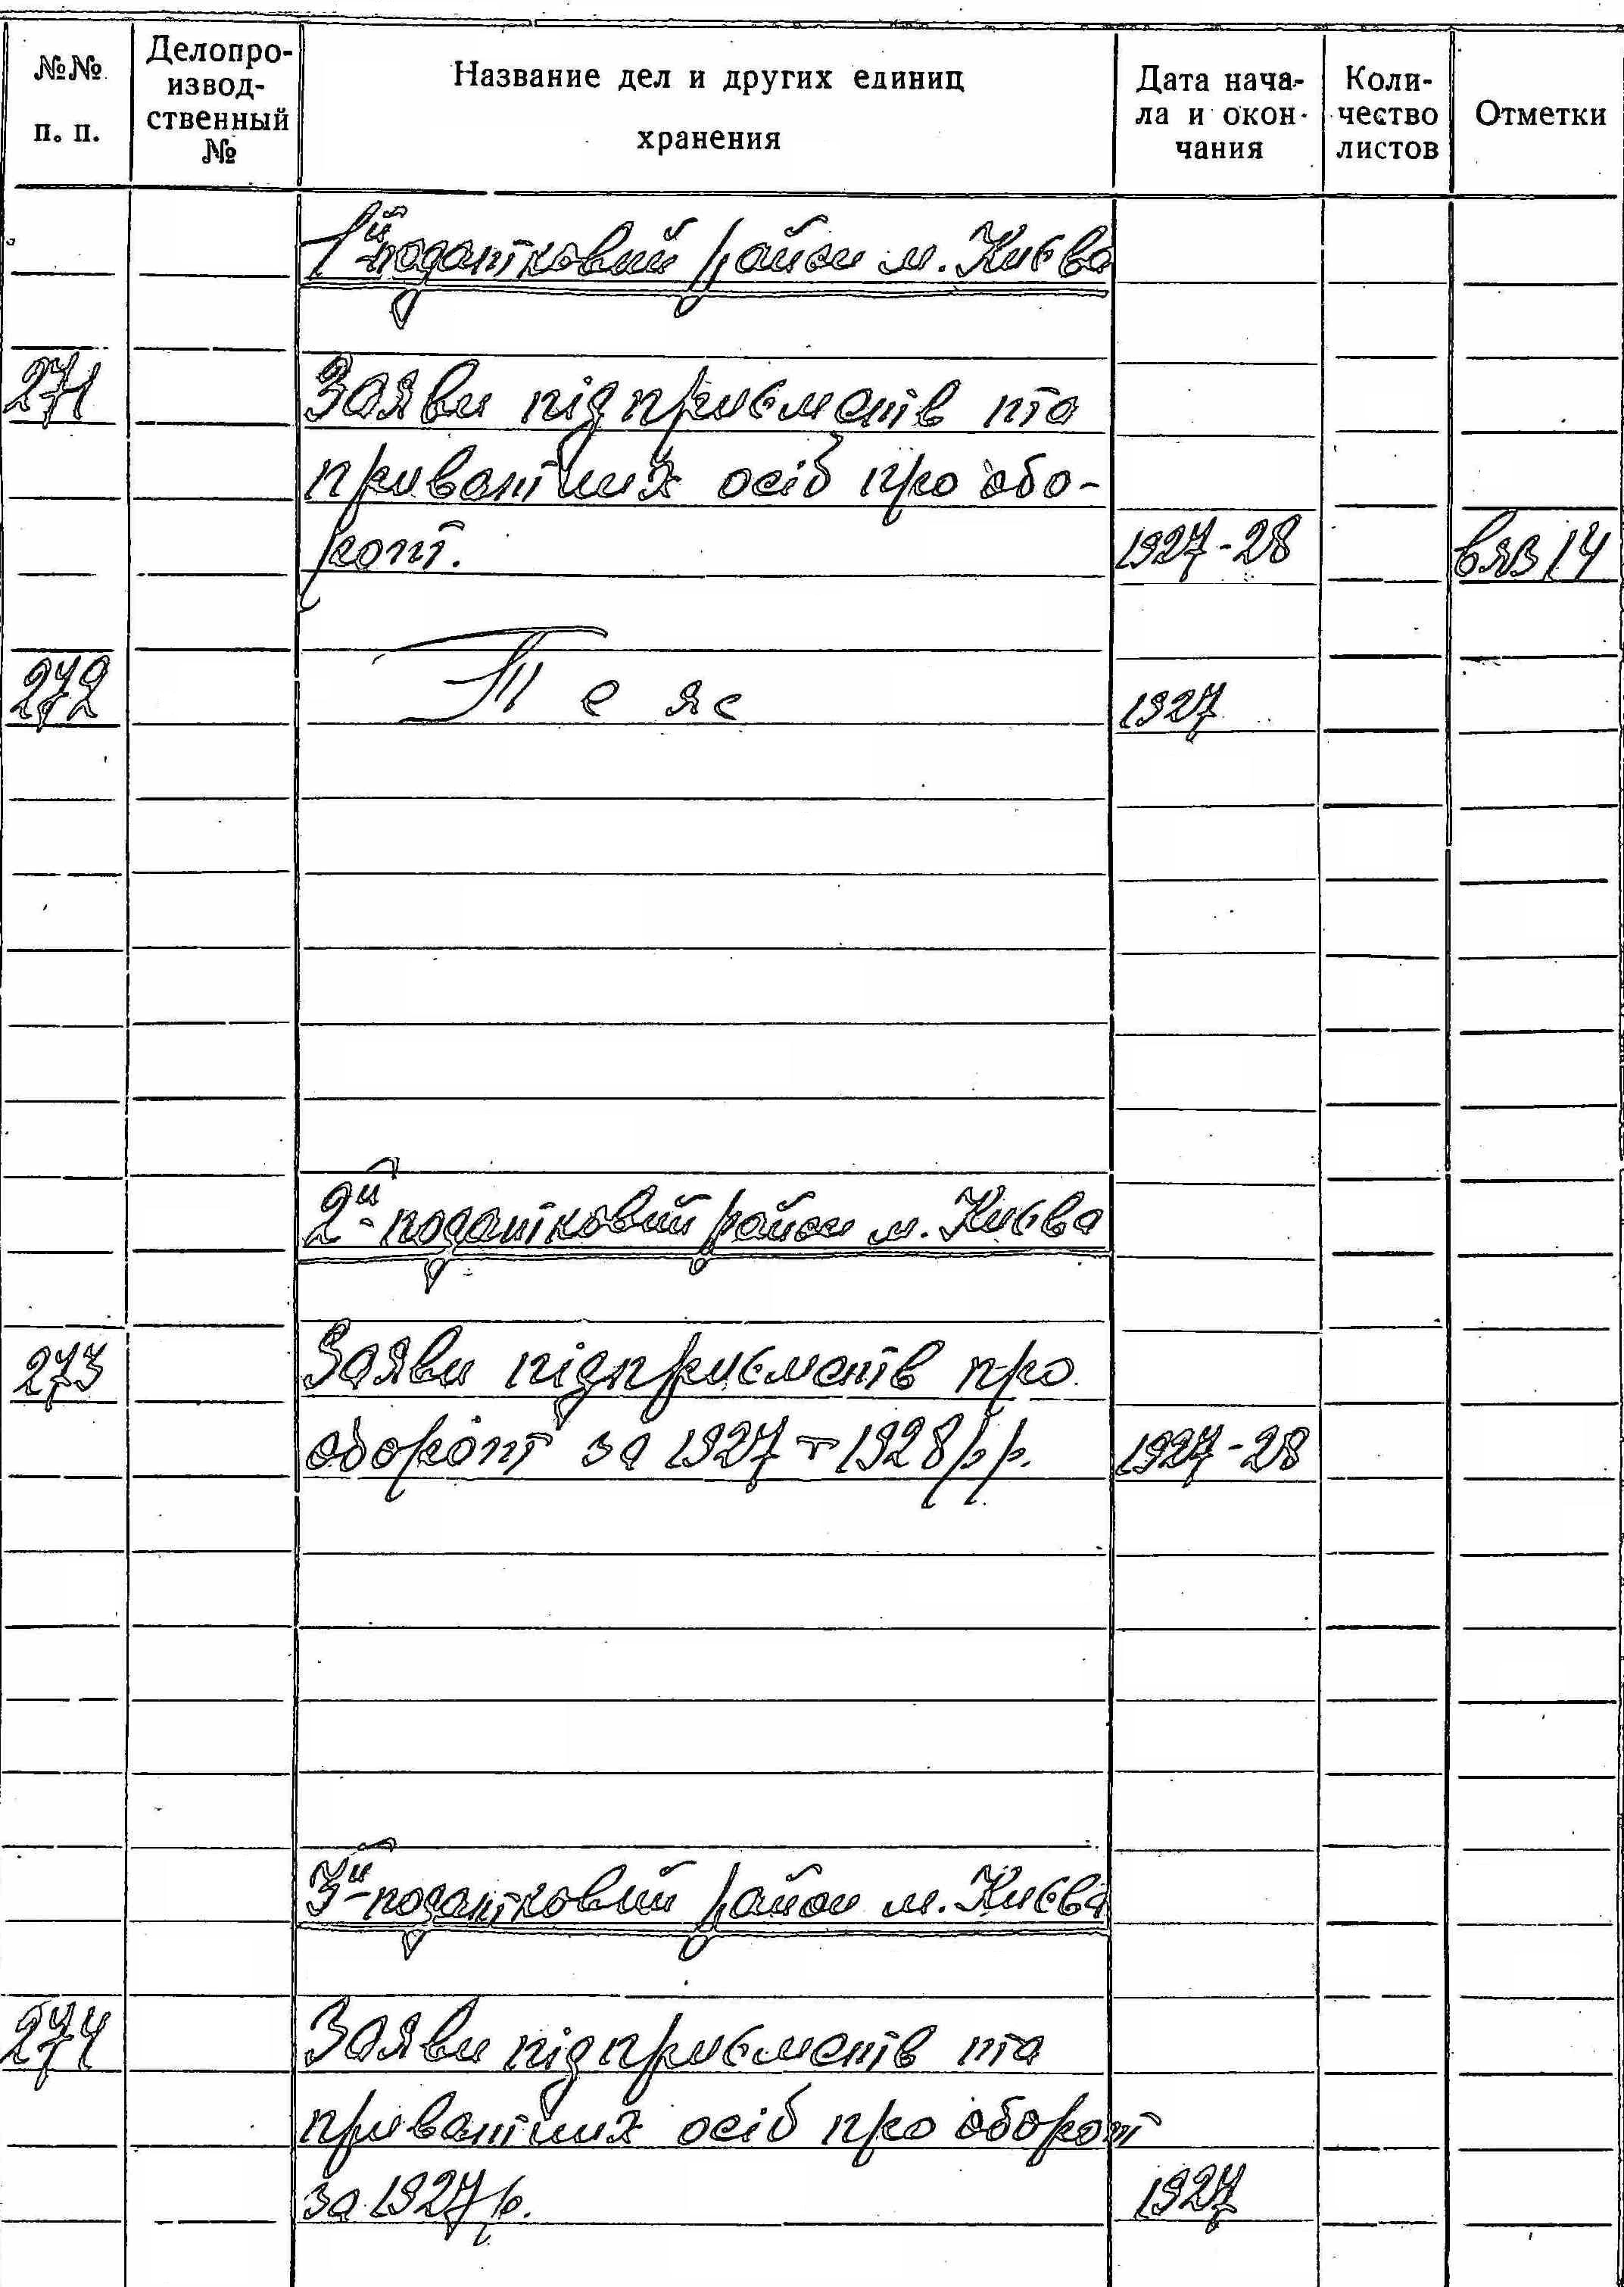 №№ п. п.
Делопро-
извод-
ственный
№
Название дел и других единиц
хранения
Дата нача-
ла и окон-
чания
Коли-
чество
листов
Отметки
1й податковий район м. Києва
271 Заяви підприємств та
приватних осіб про обо-
рот. 1927-28 вяз 14
272 Те яс 1927
2й-податковий район м. Києва
273 Заяви підприємств про
оборот за 1927-1928 р.р. 1927-28
3й-податковий район м. Києва
274 Заяви підприємств та
приватних осіб про оборот
за 1927 р. 1927